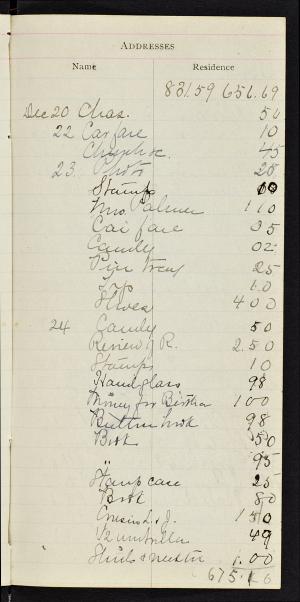 ADDRESSES
Name Residence
831.59 651.69
Dec 20 Chas. 50
22 Carfare 10
45
23 Photo 25
Stamps 10
Mrs. Palmer 1 10
Car fare 05
Candy 02
Pin Tray 25
10
Shoes 4 00
24 Candy 50
Review of R. 2.50
Stamps 10
Handglass 98
Money for Bertha 1 00
Button hook 98
Book 50
" 95
Stamp case 25
Book 80
Cousins L. & J. 1 50
1/2 umbrella 49
1.00
675.16